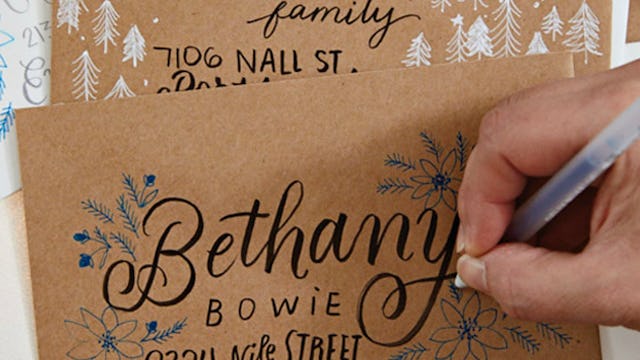 family
7106 NALL ST.
Bethany
BOWiE
STREET